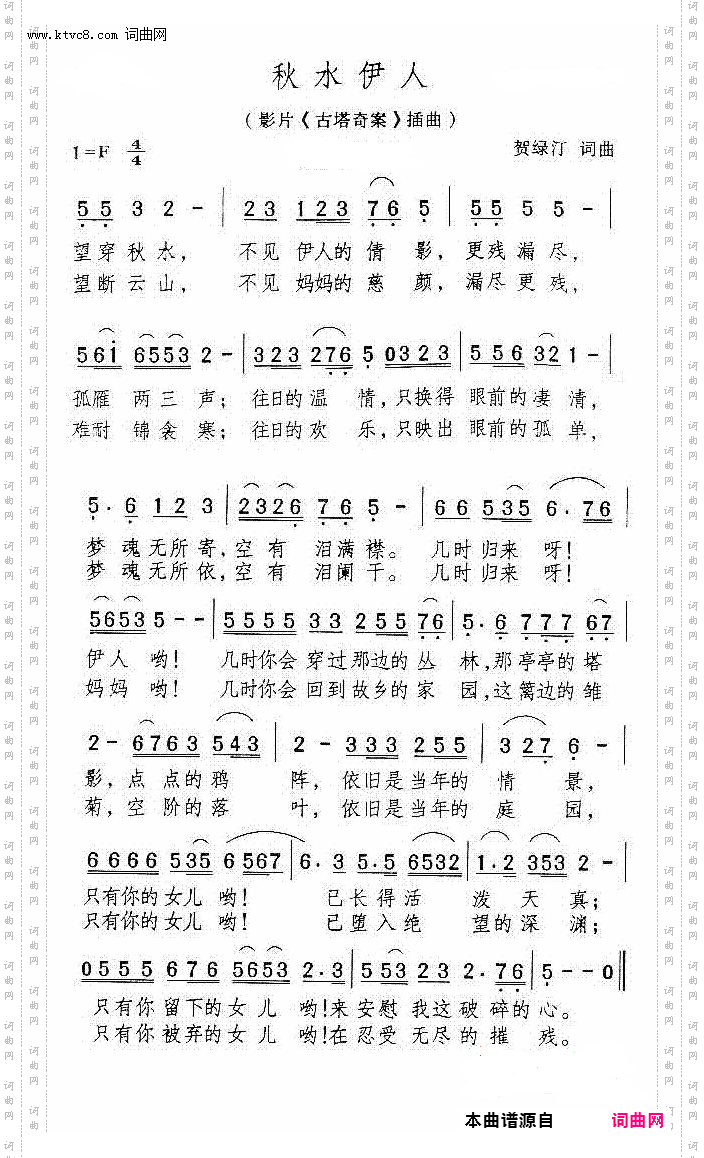 www.ktvc8.com 词曲网
秋水伊人
(影片《古塔奇案》插曲)
1=F 4/4 贺绿汀 词曲
5 5 3 2 - | 2 3 1 2 3 7 6 5 | 5 5 5 5 - |
望穿秋水, 不见伊人的倩影, 更残漏尽,
望断云山, 不见妈妈的慈颜, 漏尽更残,
5 6 i 6 5 5 3 2 - | 3 2 3 2 7 6 5 0 3 2 3 | 5 5 6 3 2 1 - |
孤雁两三声; 往日的温情,只换得眼前的凄清,
难耐锦衾寒; 往日的欢乐,只映出眼前的孤单,
5 . 6 1 2 3 | 2 3 2 6 7 6 5 - | 6 6 5 3 5 6 . 7 6 |
梦魂无所寄,空有泪满襟。 几时归来呀!
梦魂无所依,空有泪阑干。 几时归来呀!
5 6 5 3 5 - - | 5 5 5 5 3 3 2 5 5 7 6 | 5 . 6 7 7 7 6 7 |
伊人哟! 几时你会穿过那边的丛林,那亭亭的塔
妈妈哟! 几时你会回到故乡的家园,这篱边的雏
2 - 6 7 6 3 5 4 3 | 2 - 3 3 3 2 5 5 | 3 2 7 6 - |
影,点点的鸦阵, 依旧是当年的情景,
菊,空阶的落叶, 依旧是当年的庭园,
6 6 6 6 5 3 5 6 5 6 7 | 6 . 3 5 . 5 6 5 3 2 | 1 . 2 3 5 3 2 - |
只有你的女儿哟! 已长得活泼天真;
只有你的女儿哟! 已堕入绝望的深渊;
0 5 5 5 6 7 6 5 6 5 3 2 . 3 | 5 5 3 2 3 2 . 7 6 | 5 - - 0 ‖
只有你留下的女儿哟!来安慰我这破碎的心。
只有你被弃的女儿哟!在忍受无尽的摧残。
本曲谱源自 词曲网